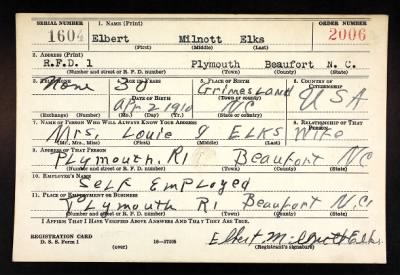 SERIAL NUMBER 1. NAME (Print) ORDER NUMBER
1604 Elbert Milnott Elks 2006
(First) (Middle) (Last)
2. ADDRESS (Print)
R.F.D. 1 Plymouth Beaufort N. C.
(Number and street or R. F. D. number) (Town) (County) (State)
3. TELEPHONE 4. AGE IN YEARS 5. PLACE OF BIRTH 6. COUNTRY OF CITIZENSHIP
None 30 Grimesland USA
DATE OF BIRTH (Town or county)
Apr 2 1910 NC
(Exchange) (Number) (Mo.) (Day) (Yr.) (State or country)
7. NAME OF PERSON WHO WILL ALWAYS KNOW YOUR ADDRESS 8. RELATIONSHIP OF THAT PERSON
Mrs. Louie J ELKS Wife
(Mr., Mrs., Miss) (First) (Middle) (Last)
9. ADDRESS OF THAT PERSON
Plymouth. R1 Beaufort NC
(Number and street or R. F. D. number) (Town) (County) (State)
10. EMPLOYER'S NAME
Self Employed
11. PLACE OF EMPLOYMENT OR BUSINESS
Plymouth R1 Beaufort N.C.
(Number and street or R. F. D. number) (Town) (County) (State)
I AFFIRM THAT I HAVE VERIFIED ABOVE ANSWERS AND THAT THEY ARE TRUE.
REGISTRATION CARD
D. S. S. Form 1 (over) 16—17105 Elbert Milnott Elks.
(Registrant's signature)